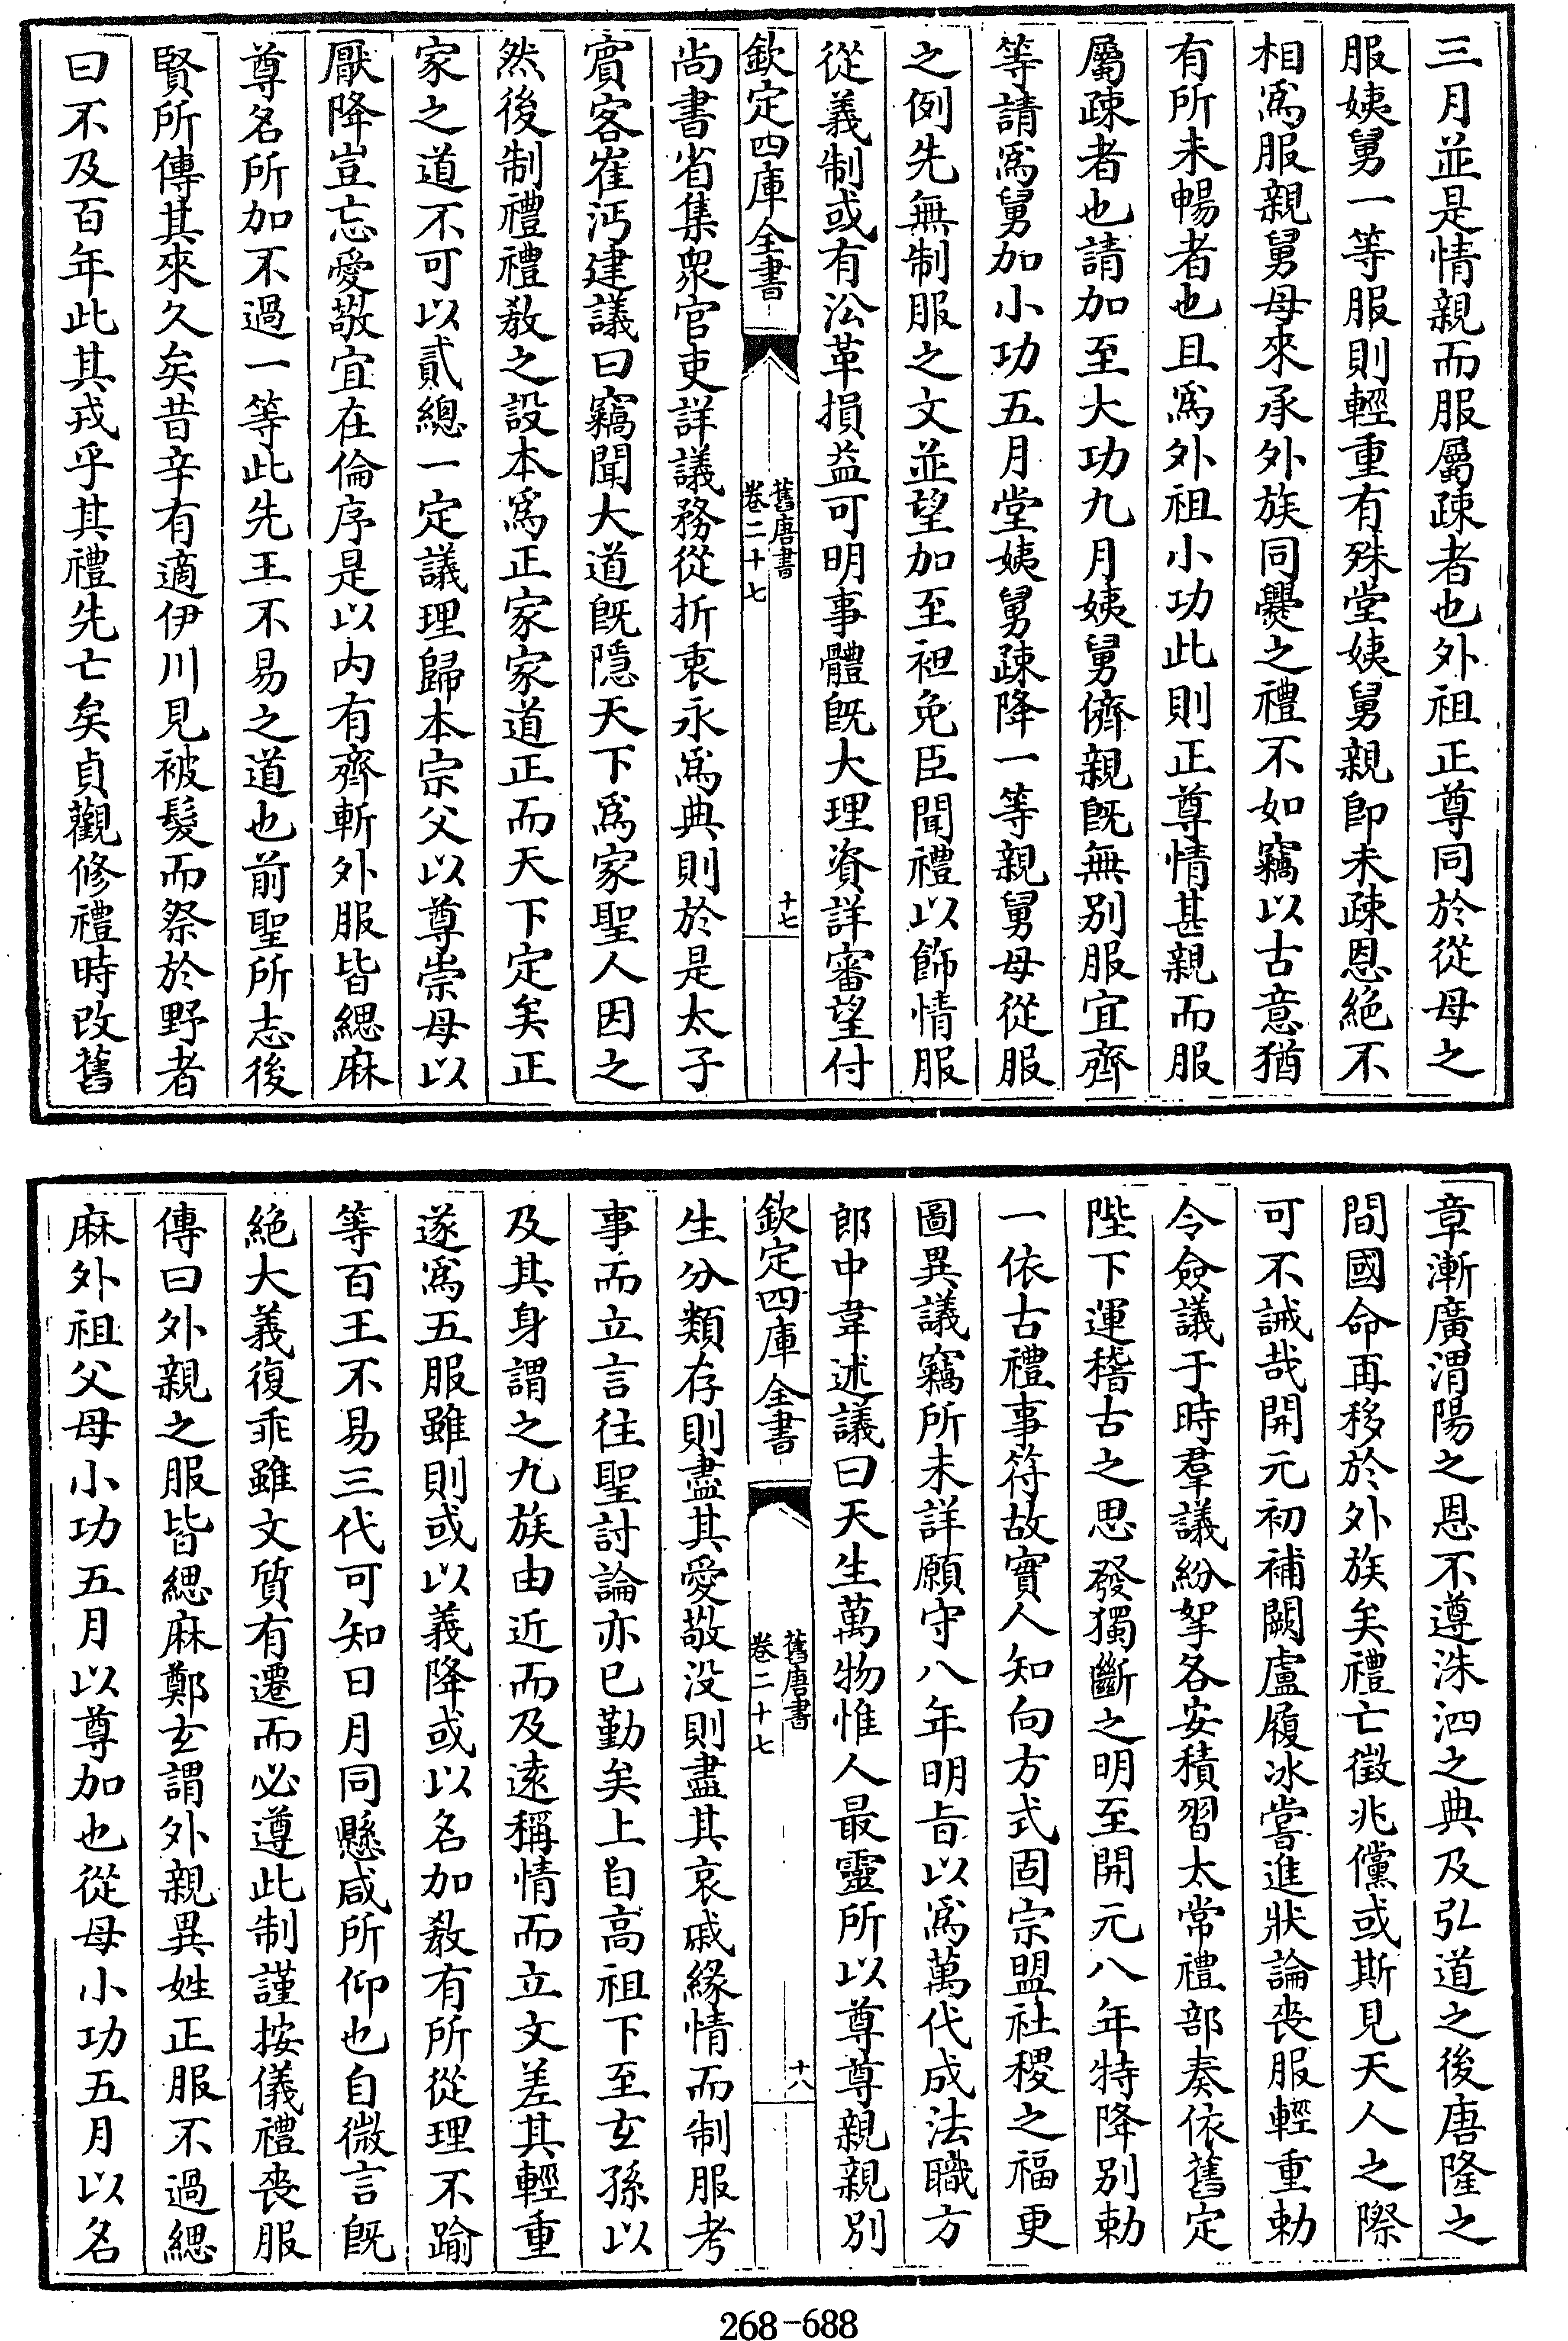 三月並是情親而服屬疎者也外祖正尊同於從母之
服姨舅一等服則輕重有殊堂姨舅親即未疎恩絕不
相爲服親舅母來承外族同爨之禮不如竊以古意猶
有所未暢者也且爲外祖小功此則正尊情甚親而服
屬疎者也請加至大功九月姨舅儕親既無别服宜齊
等請爲舅加小功五月堂姨舅疎降一等親舅母從服
之例先無制服之文並望加至袒免臣聞禮以飾情服
從義制或有沿革損益可明事體既大理資詳審望付
欽定四庫全書
舊唐書
卷二十七
十七
尚書省集衆官吏詳議務從折衷永爲典則於是太子
賓客崔沔建議曰竊聞大道既隱天下爲家聖人因之
然後制禮禮教之設本爲正家家道正而天下定矣正
家之道不可以貳總一定議理歸本宗父以尊崇母以
厭降豈忘愛敬宜在倫序是以内有齊斬外服皆緦麻
尊名所加不過一等此先王不易之道也前聖所志後
賢所傳其來久矣昔辛有適伊川見被髮而祭於野者
曰不及百年此其戎乎其禮先亡矣貞觀修禮時改舊
章漸廣渭陽之恩不遵洙泗之典及弘道之後唐隆之
間國命再移於外族矣禮亡徵兆儻或斯見天人之際
可不誡哉開元初補闕盧履冰嘗進狀論喪服輕重勅
令僉議于時羣議紛拏各安積習太常禮部奏依舊定
陛下運稽古之思發獨斷之明至開元八年特降别勅
一依古禮事符故實人知向方式固宗盟社稷之福更
圖異議竊所未詳願守八年明旨以爲萬代成法職方
郎中韋述議曰天生萬物惟人最靈所以尊尊親親别
欽定四庫全書
舊唐書
卷二十七
十八
生分類存則盡其愛敬没則盡其哀戚緣情而制服考
事而立言往聖討論亦已勤矣上自高祖下至玄孫以
及其身謂之九族由近而及遠稱情而立文差其輕重
遂爲五服雖則或以義降或以名加教有所從理不踰
等百王不易三代可知日月同懸咸所仰也自微言既
絕大義復乖雖文質有遷而必遵此制謹按儀禮喪服
傳曰外親之服皆緦麻鄭玄謂外親異姓正服不過緦
麻外祖父母小功五月以尊加也從母小功五月以名
268-688